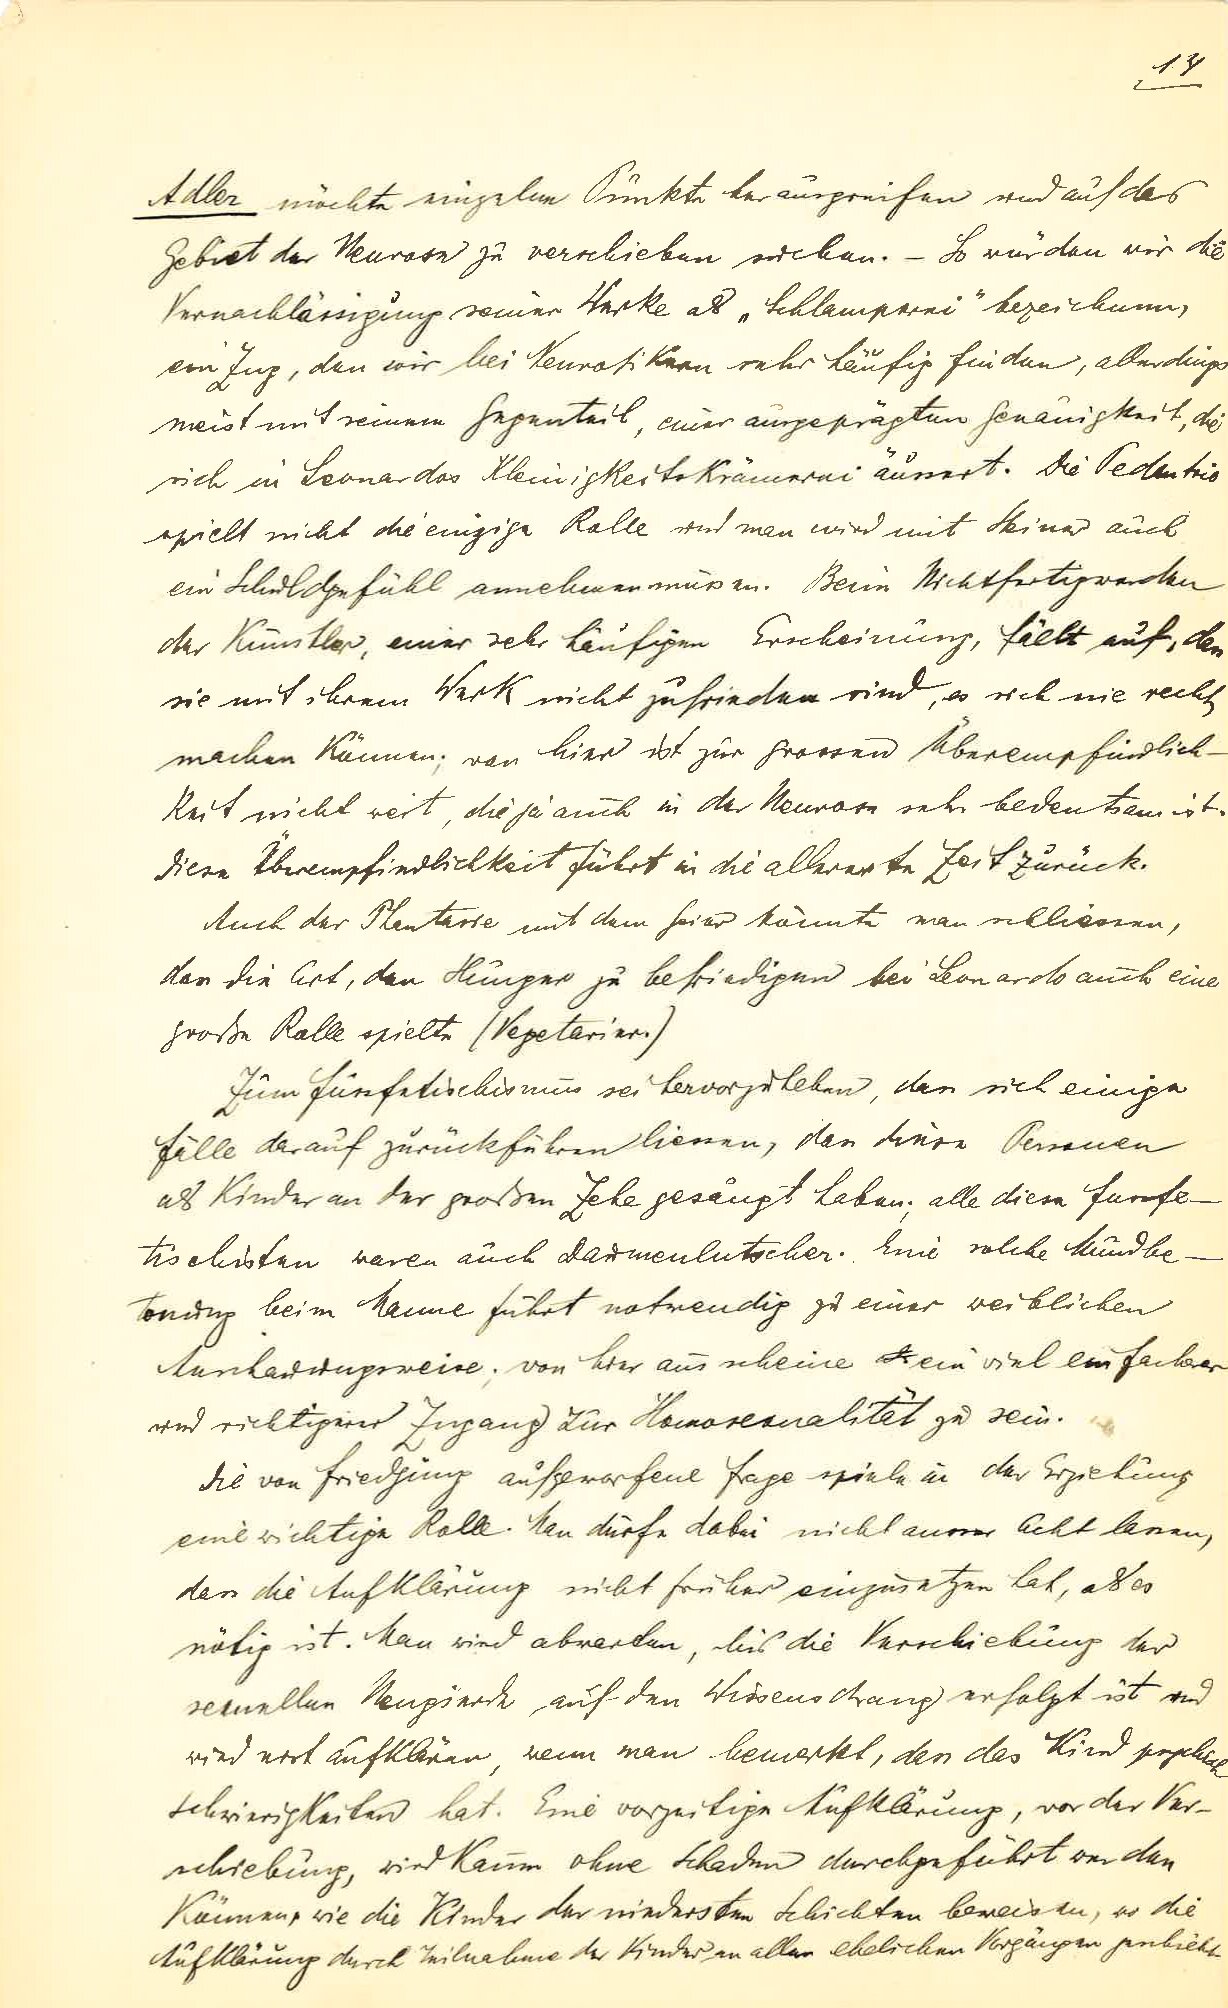 14
Adler möchte einzelne Punkte herausgreifen und auf das
Gebiet der Neurose zu verschieben suchen. – So würden wir die
Vernachlässigung seiner Werke als „Schlamperei" bezeichnen,
ein Zug, den wir bei Neurotikern sehr häufig finden, allerdings
meist mit seinem Gegenteil, einer ausgeprägten Genauigkeit, die
sich in Leonardos Kleinigkeitskrämerei äussert. Die Pedanterie
spielt nicht die einzige Rolle und man wird mit Steiner auch
ein Schuldgefühl annehmen müssen. Beim Nichtfertigwerden
der Künstler, einer sehr häufigen Erscheinung, fällt auf, dass
sie mit ihrem Werk nicht zufrieden sind, es sich nie recht
machen können; von hier ist zur grossen Überempfindlich-
keit nicht weit, die ja auch in der Neurose sehr bedeutsam ist.
Diese Überempfindlichkeit führt in die allererste Zeit zurück.
Auch der Phantasie mit dem Geier könnte man schliessen,
dass die Art, den Hunger zu befriedigen bei Leonardo auch eine
große Rolle spielte (Vegetarier.)
Zum Fussfetischismus sei hervorzuheben, dass sich einige
Fälle darauf zurückführen liessen, dass diese Personen
als Kinder an der großen Zehe gesaugt haben; alle diese Fussfe-
tischisten waren auch Daumenlutscher. Eine solche Mundbe-
tonung beim Manne führt notwendig zu einer weiblichen
Anschauungsweise; von hier aus scheine ein viel einfacherer
und richtigerer Zugang zur Homosexualität zu sein.
Die von Friedjung aufgeworfene Frage spiele in der Erziehung
eine wichtige Rolle. Man dürfe dabei nicht ausser Acht lassen,
dass die Aufklärung nicht früher einzusetzen hat, als es
nötig ist. Man wird abwarten, bis die Verschiebung der
sexuellen Neugierde auf den Wissensdrang erfolgt ist und
wird erst aufklären, wenn man bemerkt, dass das Kind psychische
Schwierigkeiten hat. Eine vorzeitige Aufklärung, vor der Ver-
schiebung, wird kaum ohne Schaden durchgeführt werden
können, wie die Kinder der niedersten Schichten beweisen, wo die
Aufklärung durch Teilnahme der Kinder an allen ehelichen Vorgängen geschieht